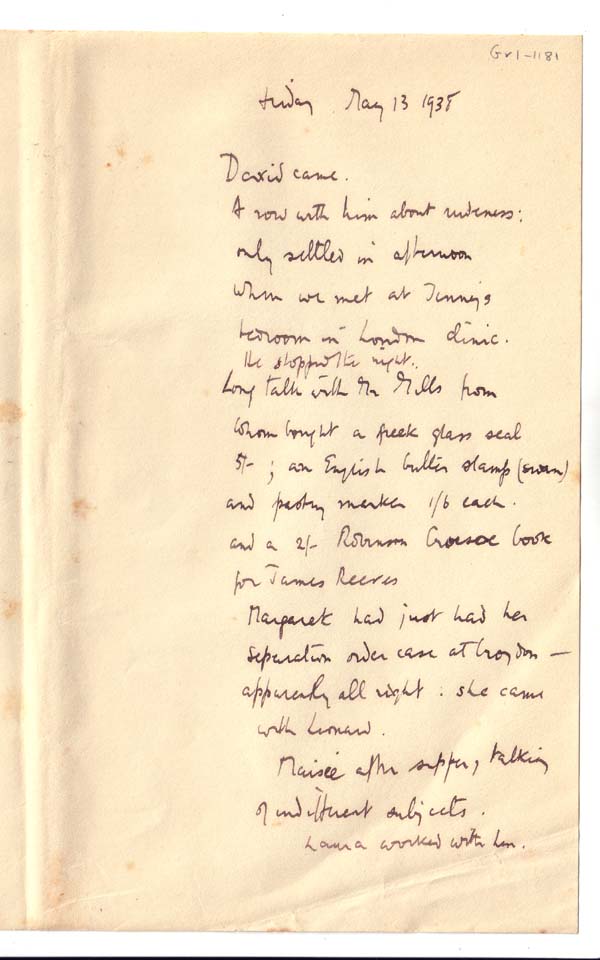 Gv1-1181
Friday May 13 1938
David came.
A row with him about rudeness:
only settled in afternoon
when we met at Jenny's
bedroom in London clinic.
He stopped the night.
Long talk with Mr Mills from
whom bought a Greek glass seal
5/- ; an English butter stamp (swan)
and pastry marker 1/6 each.
and a 2/- Robinson Crusoe book
for James Reeves
Margaret had just had her
separation order case at Croydon —
apparently all right : she came
with Leonard.
Maisie after supper, talking
of indifferent subjects.
Laura worked with Len.